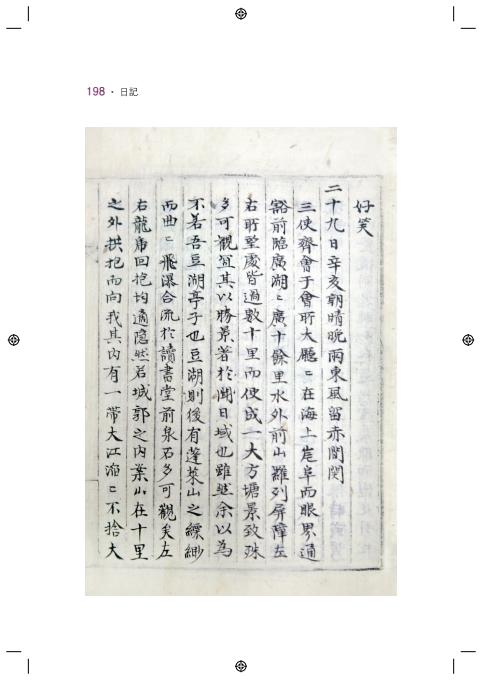 198 · 日記
好笑
二十九日辛亥朝晴晩雨東風留赤間関
三使齊會于會所大廳〻在海上崖阜而眼界通
豁前臨廣湖〻廣十餘里水外前山羅列屏障左
右所望處皆過數十里而便成一大方塘景致殊
多可觀宜其以勝景著於聞日域也雖然余以為
不若吾豆湖亭子也豆湖則後有蓬萊山之縹緲
而曲〻飛瀑合流於讀書堂前泉石多可觀矣左
右龍虎回抱均適隱然若城郭之内葉山在十里
之外拱抱而向我其内有一帶大江滔〻不捨大